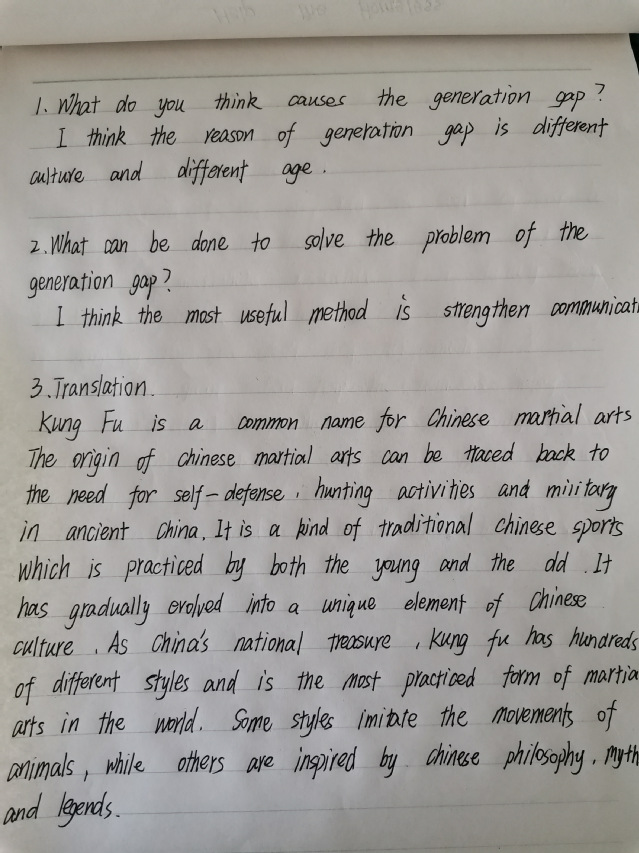 1. What do you think causes the generation gap?
I think the reason of generation gap is different
culture and different age.
2. What can be done to solve the problem of the
generation gap?
I think the most useful method is strengthen communicati
3. Translation.
Kung Fu is a common name for Chinese martial arts
The origin of chinese martial arts can be traced back to
the need for self-defense, hunting activities and military
in ancient China. It is a kind of traditional chinese sports
which is practiced by both the young and the old. It
has gradually evolved into a unique element of Chinese
culture. As China's national treasure, kung fu has hundreds
of different styles and is the most practiced form of martia
arts in the world. Some styles imitate the movements of
animals, while others are inspired by chinese philosophy, myth
and legends.